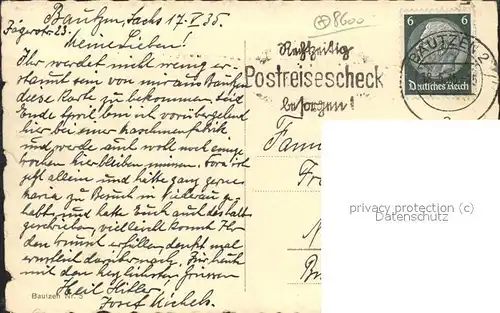 Bautzen, Sachs 17.V.35.
Jägerstr. 23.
Meine Lieben!
Ihr werdet nicht wenig er-
staunt sein von mir aus Bautzen
diese Karte zu bekommen. Seit
Ende April bin ich vorübergehend
hier bei einer Maschinenfabrik
und werde auch wohl noch einige
Wochen hier bleiben müssen.
jetzt allein und hätte ganz gerne
Maria zu Besuch in ge-
habt, und hatte Euch auch deshalb
geschrieben, vielleicht könnt Ihr
den erfüllen, denkt mal
darüber nach. Für heute
mit den herzlichsten Grüssen
Heil Hitler,
Josef Michels.
Bautzen Nr. 3
8600
Rechtzeitig
Postreisescheck
besorgen!
6 6
Deutsches Reich
BAUTZEN 2
Fam
Fr
privacy protection (c)
Datenschutz